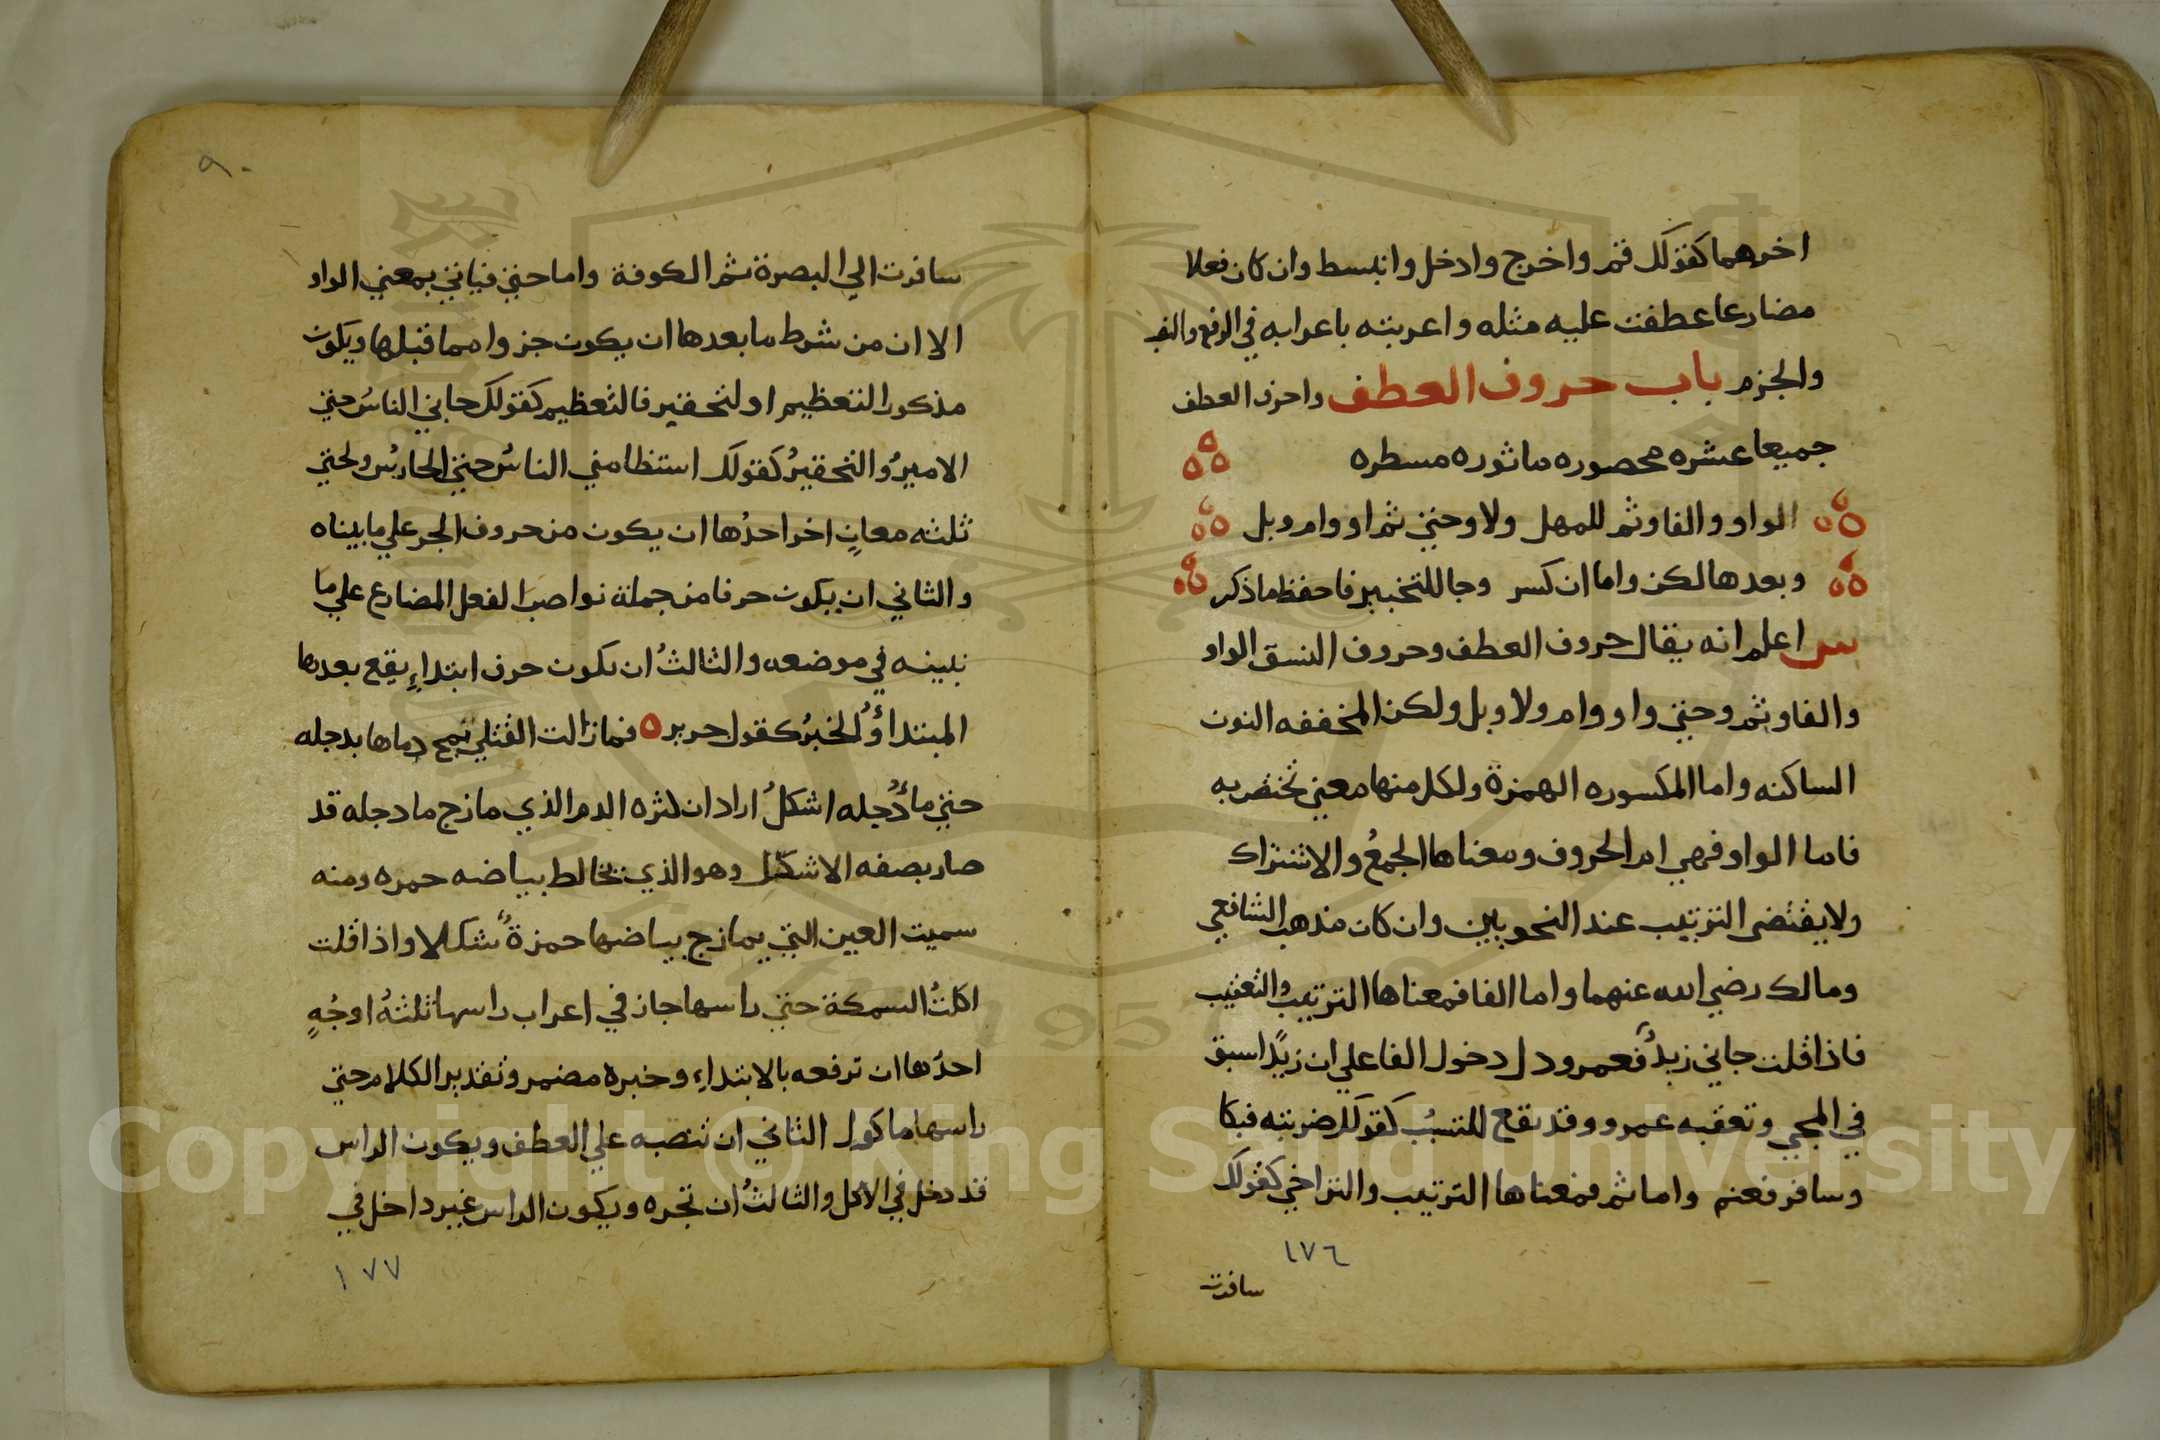 اخرهما كقولك قم واخرج وادخل وانبسط وان كان فعلا
مضارعا عطفت عليه مثله واعربته باعرابه في الرفع والنصب
والجزم باب حروف العطف واحرف العطف
جميعا عشره محصوره ماثوره مسطره
الواو والفا وثم للمهل ولا وحتي ثم او وام وبل
وبعدها لكن واما ان كسر وجا للتخيير فاحفظ ما ذكر
س اعلم انه يقال حروف العطف وحروف النسق الواو
والفا وثم وحتي واو وام ولا وبل ولكن المخففه النون
الساكنه واما المكسوره الهمزة ولكل منها معني تختص به
فاما الواو فهي ام الحروف ومعناها الجمعُ والاشتراك
ولا يقتضي الترتيب عند النحويين وان كان مذهب الشافعي
ومالك رضي الله عنهما واما الفا فمعناها الترتيب والتعقيب
فاذا قلت جاني زيدٌ فعمرو دل دخول الفا علي ان زيدًا سبق
في المجي وتعقبه عمرو وقد تقع للتسبُب كقولك ضربته فبكا
وسافر فغنم واما ثم فمعناها الترتيب والتراخي كقولك
١٧٦
سافرت
٩٠
سافرت الي البصرة ثم الكوفة واما حتي فياتي بمعني الواو
الا ان من شرط ما بعدها ان يكون جزوا مما قبلها ويكون
مذكورا لتعظيم او لتحقير فالتعظيم كقولك جاني الناسُ حتي
الاميرُ والتحقيرُ كقولك استنظا مني الناسُ حتي الحارسُ ولحتي
ثلثه معانٍ اخر احدُها ان يكون من حروف الجر علي ما بيناه
والثاني ان يكون حرفا من جملة نواصب الفعل المضارع علي ما
نبينه في موضعه والثالثُ ان يكون حرف ابتداءٍ يقع بعدها
المبتداءُ والخبرُ كقول جرير ه فما زالت القتلي تمج دماها بدجله
حتي ماءُ دجله اشكلُ اراد ان كثره الدم الذي مازج ما دجله قد
صار بصفه الاشكل وهو الذي تخالط بياضه حمره ومنه
سميت العين التي يمازج بياضها حمرةٌ شكلا واذا قلت
اكلتُ السمكة حتي راسها جاز في اعراب راسها ثلثةُ اوجُهٍ
احدُها ان ترفعه بالابتداءِ وخبره مضمر وتقدير الكلام حتي
راسها ماكول الثاني ان تنصبه علي العطف ويكون الراس
قد دخل في الاكل والثالثُ ان تجره ويكون الراس غير داخل في
١٧٧
Copyright © King Saud University
1957